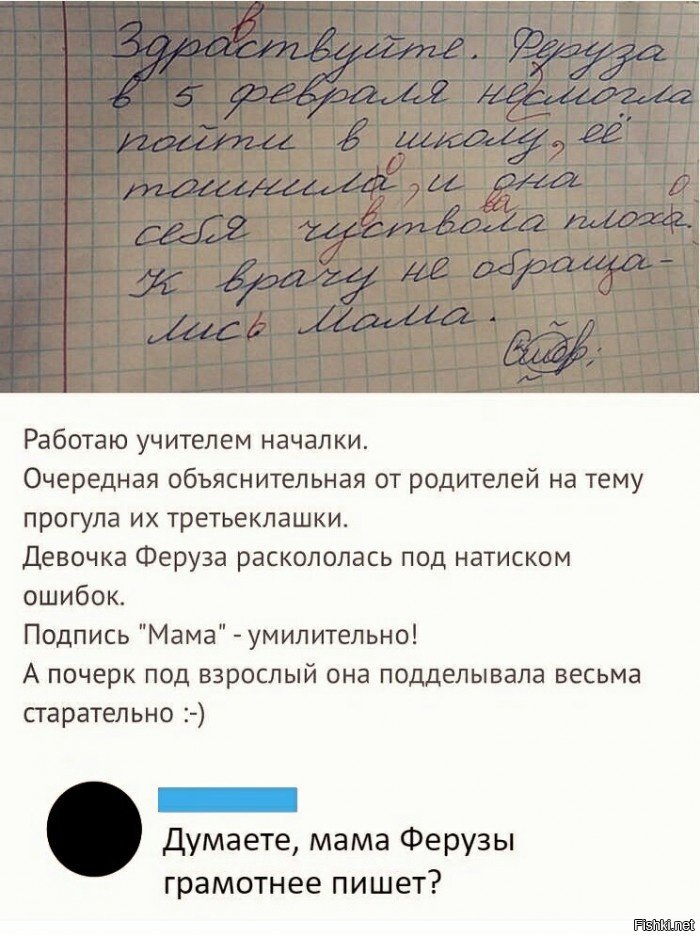 Здраствуйте. Феруза
в
в 5 февраля несмогла
пойти в школу, её
тошнила, и она
о
себя чуствола плоха.
в ва о
К врачу не обраща-
лись Мама.
Работаю учителем началки.
Очередная объяснительная от родителей на тему
прогула их третьеклашки.
Девочка Феруза раскололась под натиском
ошибок.
Подпись "Мама" - умилительно!
А почерк под взрослый она подделывала весьма
старательно :-)
Думаете, мама Ферузы
грамотнее пишет?
Fishki.net